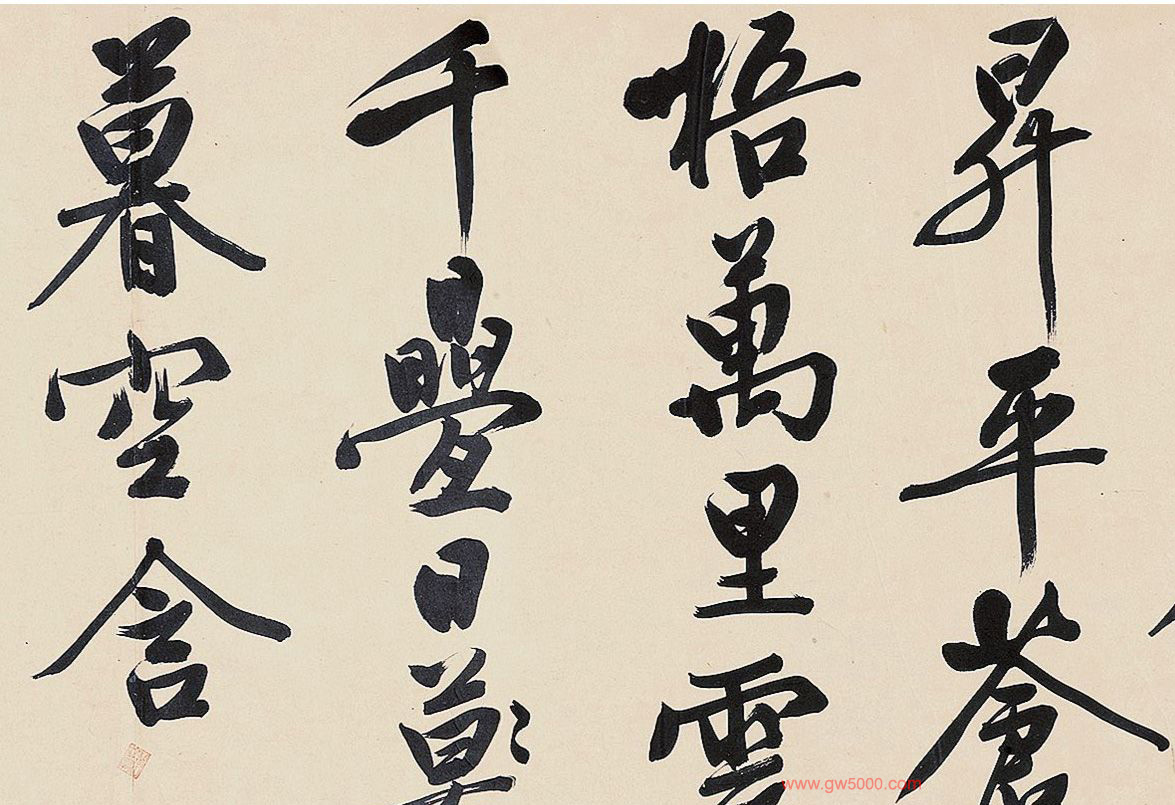 昇平蒼
梧萬里雲
千疊日
暮空含
www.gw5000.com